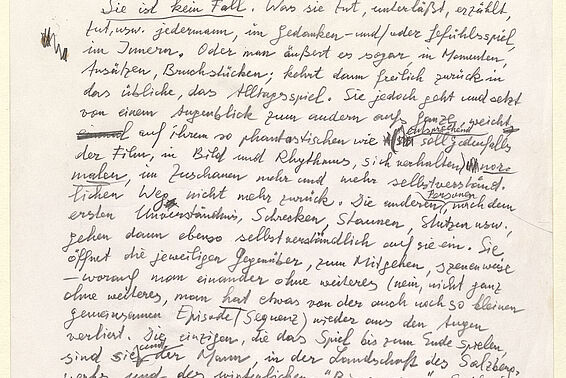 Sie ist kein Fall. Was sie tut, unterläßt, erzählt,
tut, usw. jedermann, in Gedanken- und/oder Gefühlsspiel,
im Innern. Oder man äußert es sogar, in Momenten,
Ansätzen, Bruchstücken; kehrt dann freilich zurück in
das übliche, das Alltagsspiel. Sie jedoch geht und setzt
von einem Augenblick zum andern aufs Ganze, weicht
auf ihrem so phantastischen wie (entsprechend soll jedenfalls
der Film, in Bild und Rhythmus, sich verhalten) nor-
malen, im Zuschauen mehr und mehr selbstverständ-
lichen Weg nicht mehr zurück. Die anderen Personen, nach dem
ersten Unverständnis, Schrecken, Staunen, Stutzen usw.,
gehen dann ebenso selbstverständlich auf sie ein. Sie
öffnet die jeweiligen Gegenüber, zum Mitgehen, szenenweise
– worauf man einander ohne weiteres (nein, nicht ganz
ohne weiteres, man hat etwas von der auch noch so kleinen
gemeinsamen Episode/Sequenz) wieder aus den Augen
verliert. Die einzigen, die das Spiel bis zum Ende spielen,
sind sie und der Mann, in der Landschaft des Salzberg-
werks und des winterlichen